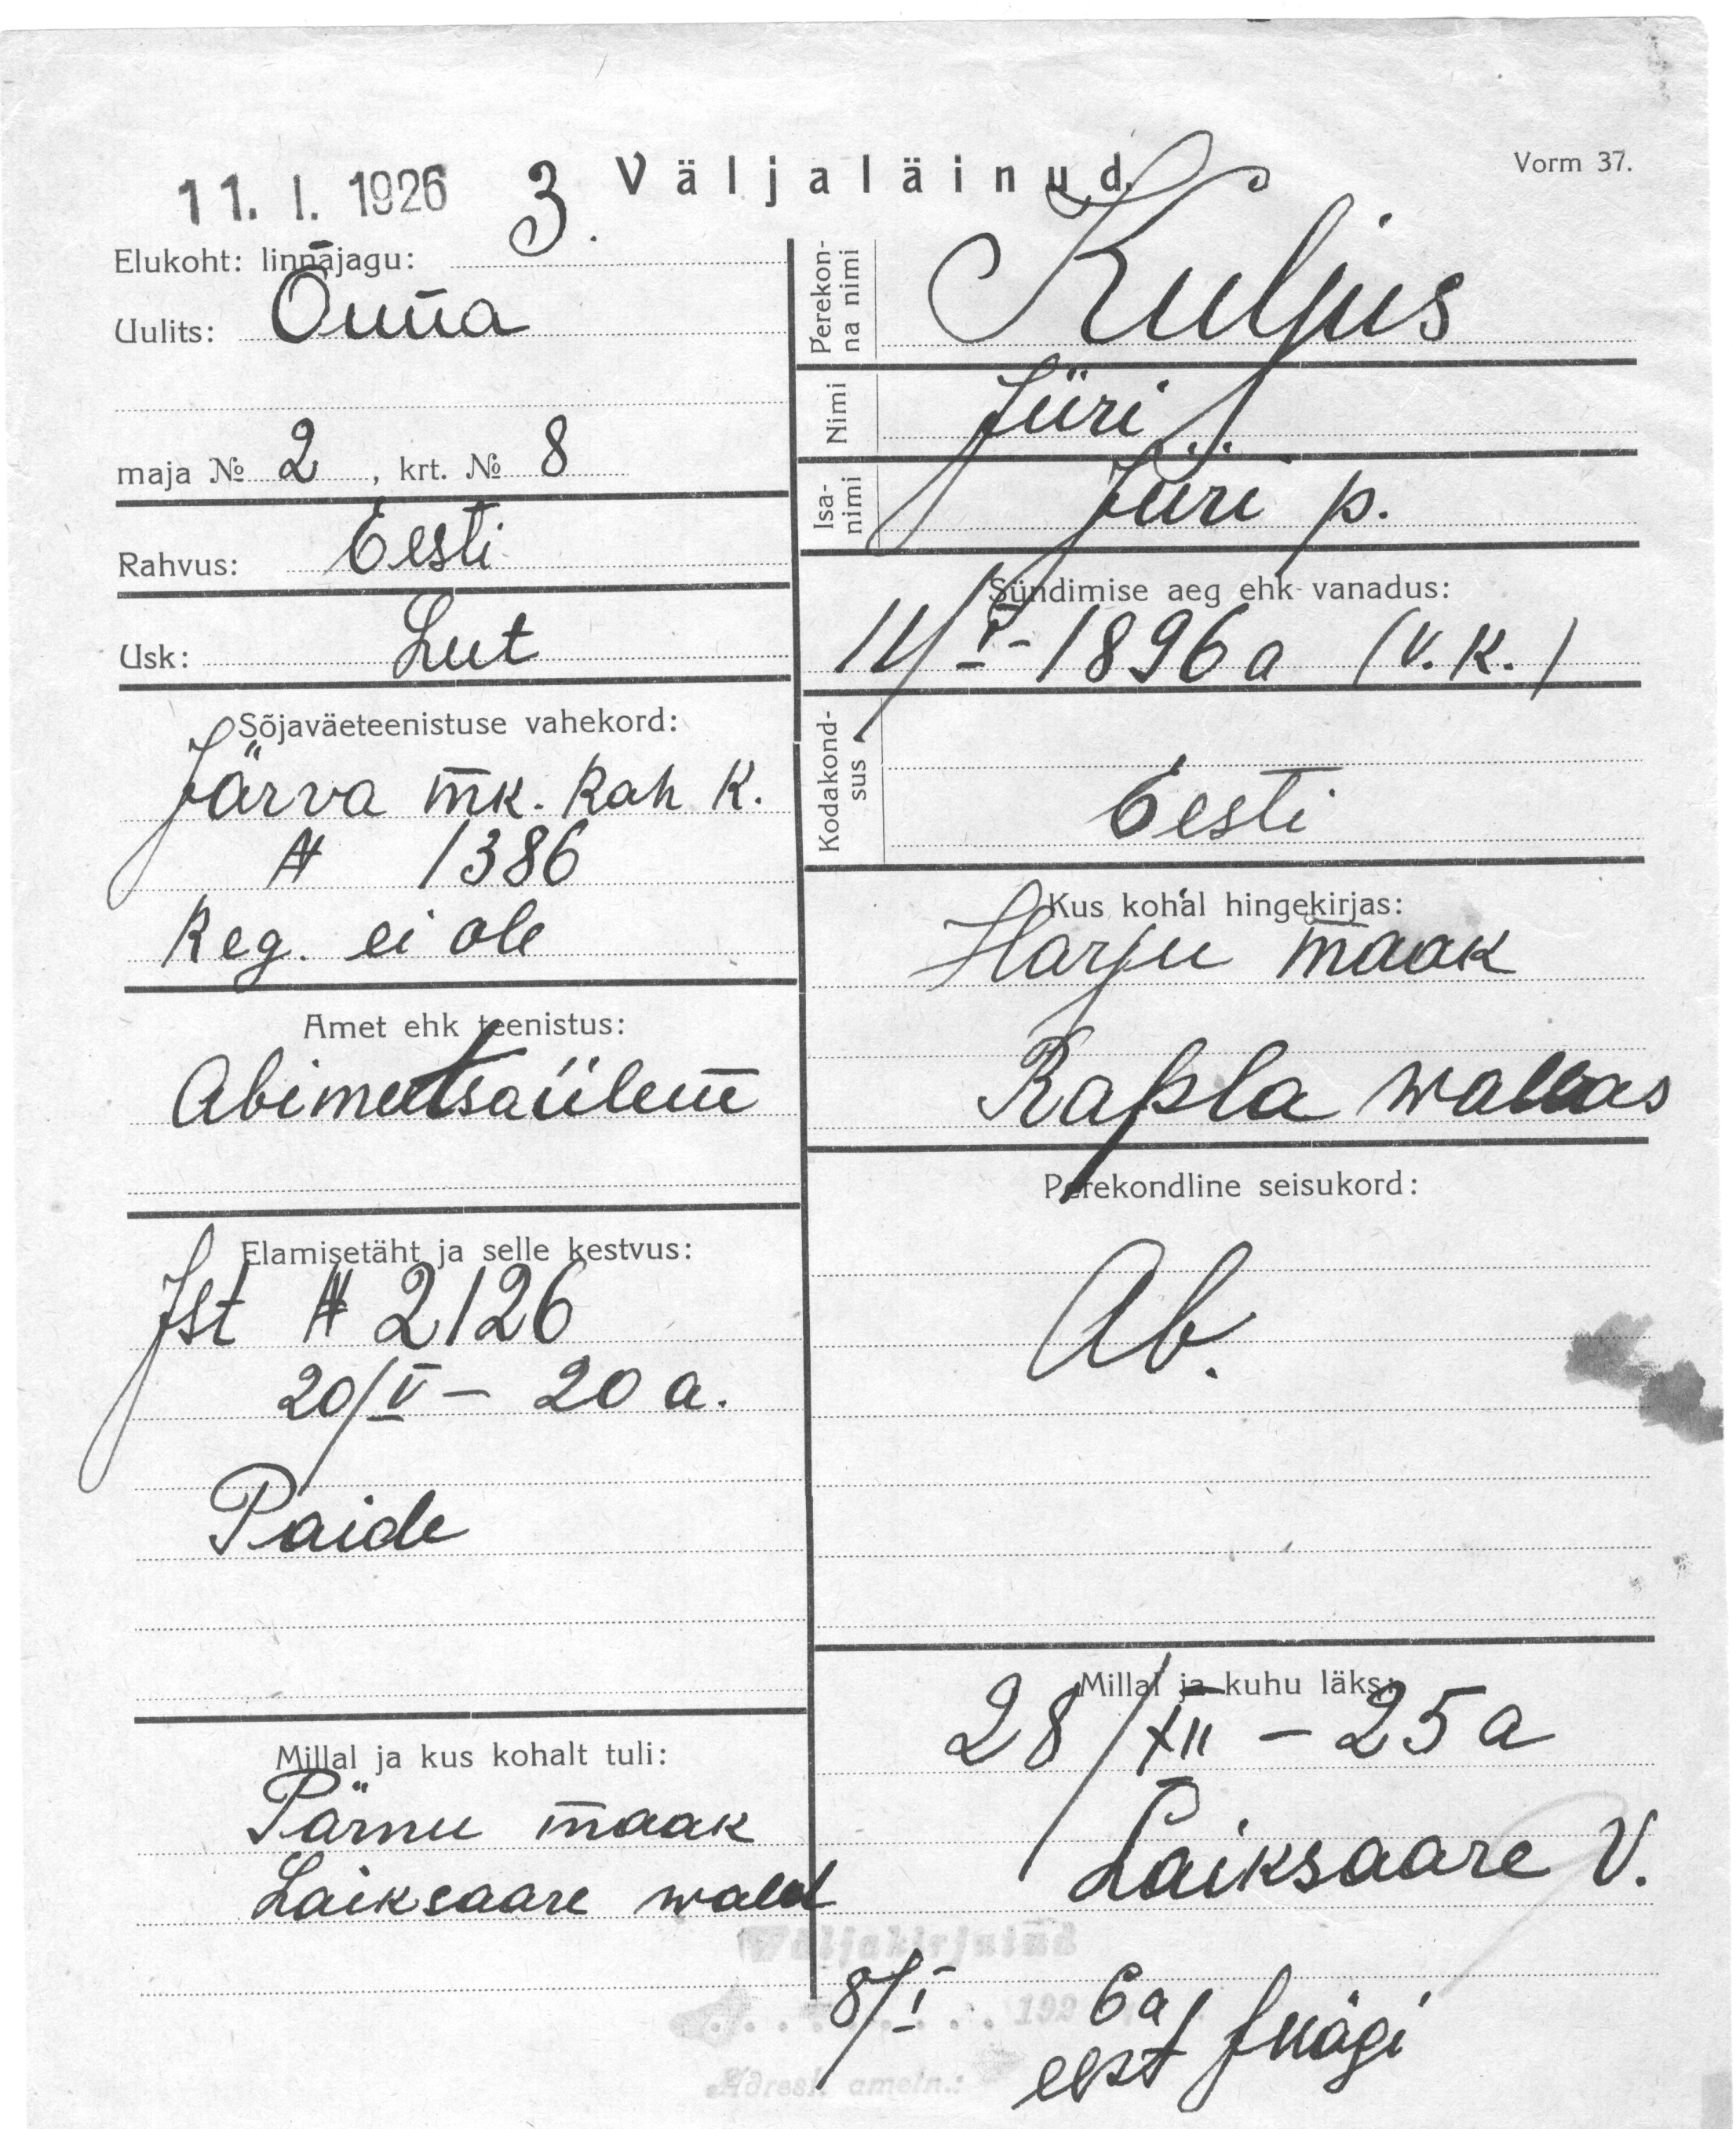 11. I. 1926
Väljaläinud.
Vorm 37.
Elukoht: linnajagu: 3.
Uulits: Õuna
maja № 2, krt. № 8
Rahvus: Eesti
Usk: Lut
Sõjaväeteenistuse vahekord:
Järva mk. Rah K.
№ 1386
Reg. ei ole
Amet ehk teenistus:
Abimetsaülem
Elamisetäht ja selle kestvus:
Jst № 2126
20/V – 20 a.
Paide
Millal ja kus kohalt tuli:
Pärnu maak
Laiksaare wald
Perekon-
na nimi
Kuljus
Nimi
Jüri
Isa-
nimi
Jüri p.
Sündimise aeg ehk vanadus:
1896 a (v. k.)
Kodakond-
sus
Eesti
Kus kohal hingekirjas:
Harju maak
Rapla wallas
Perekondline seisukord:
Ab.
Millal ja kuhu läks:
28/XII – 25 a
Laiksaare V.
Väljakirjutud
8/I 192 6 a
Adresk. ametn.:
eest